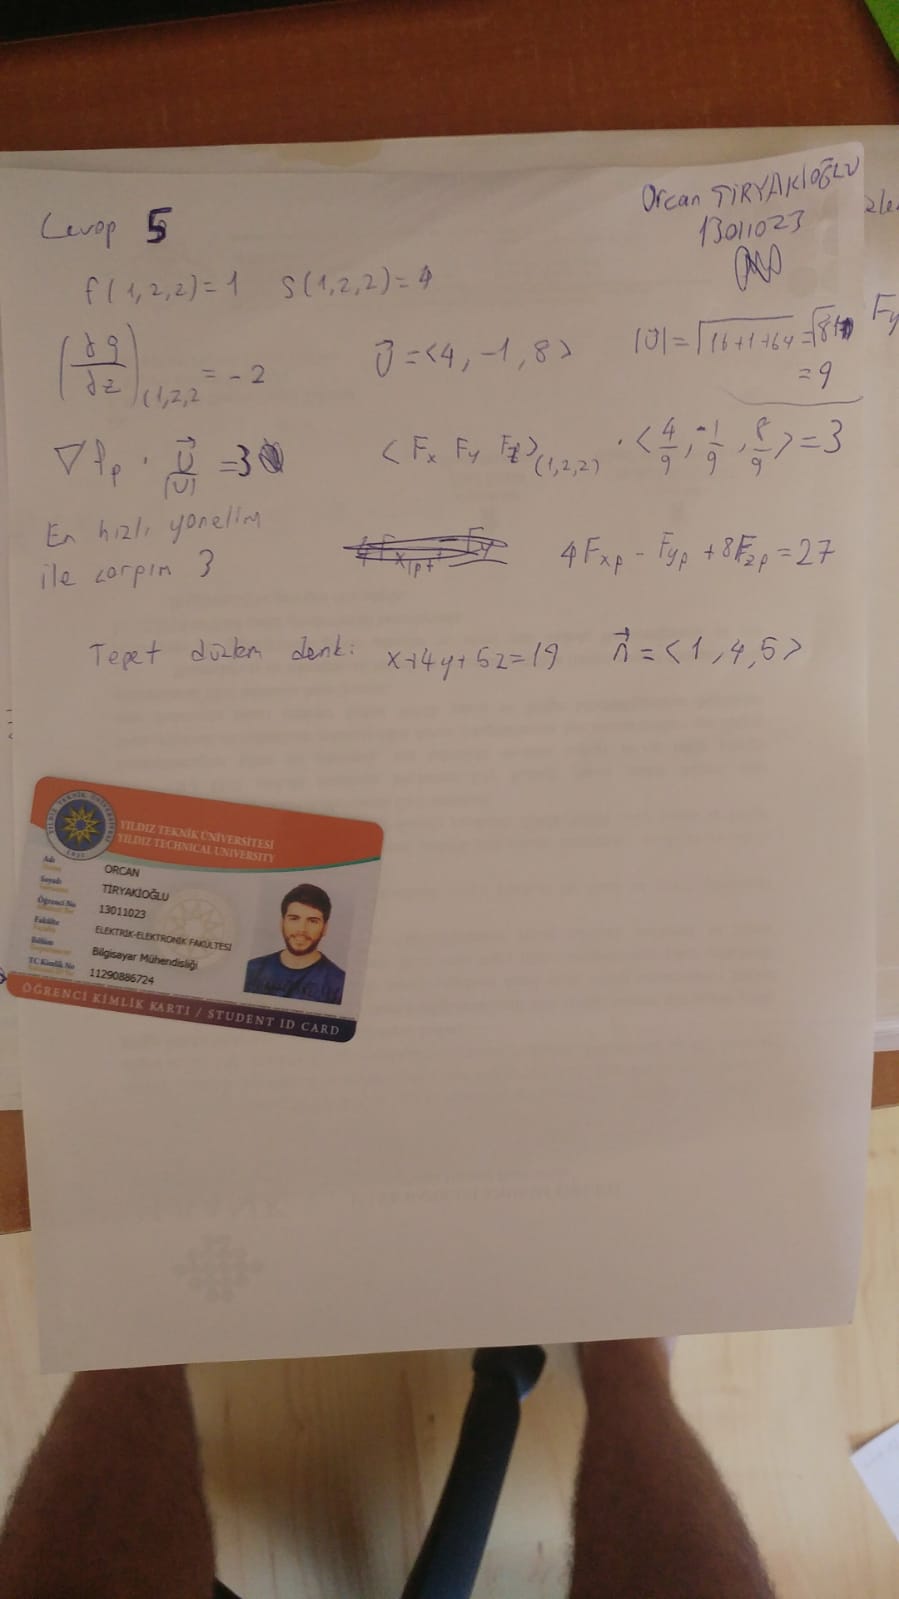 Orcan TİRYAKİOĞLU
13011023
Cevap 5
f(1,2,2)=1 S(1,2,2)=4
(∂g/∂z)(1,2,2 = -2 U⃗ = <4, -1, 8> |U|=√16+1+64 = √81
= 9
Fy
∇fp · U⃗/|U| = 3 <Fx Fy Fz>(1,2,2) · <4/9, -1/9, 8/9> = 3
En hızlı yönelim
ile çarpım 3 4Fxp - Fyp + 8Fzp = 27
Teğet düzlem denk: x+4y+5z=19 n⃗ = <1,4,5>
YILDIZ TEKNİK ÜNİVERSİTESİ
YILDIZ TECHNICAL UNIVERSITY
Adı ORCAN
Soyadı TİRYAKİOĞLU
Öğrenci No 13011023
Fakülte ELEKTRİK-ELEKTRONİK FAKÜLTESİ
Bölüm Bilgisayar Mühendisliği
TC Kimlik No 11290886724
ÖĞRENCİ KİMLİK KARTI / STUDENT ID CARD